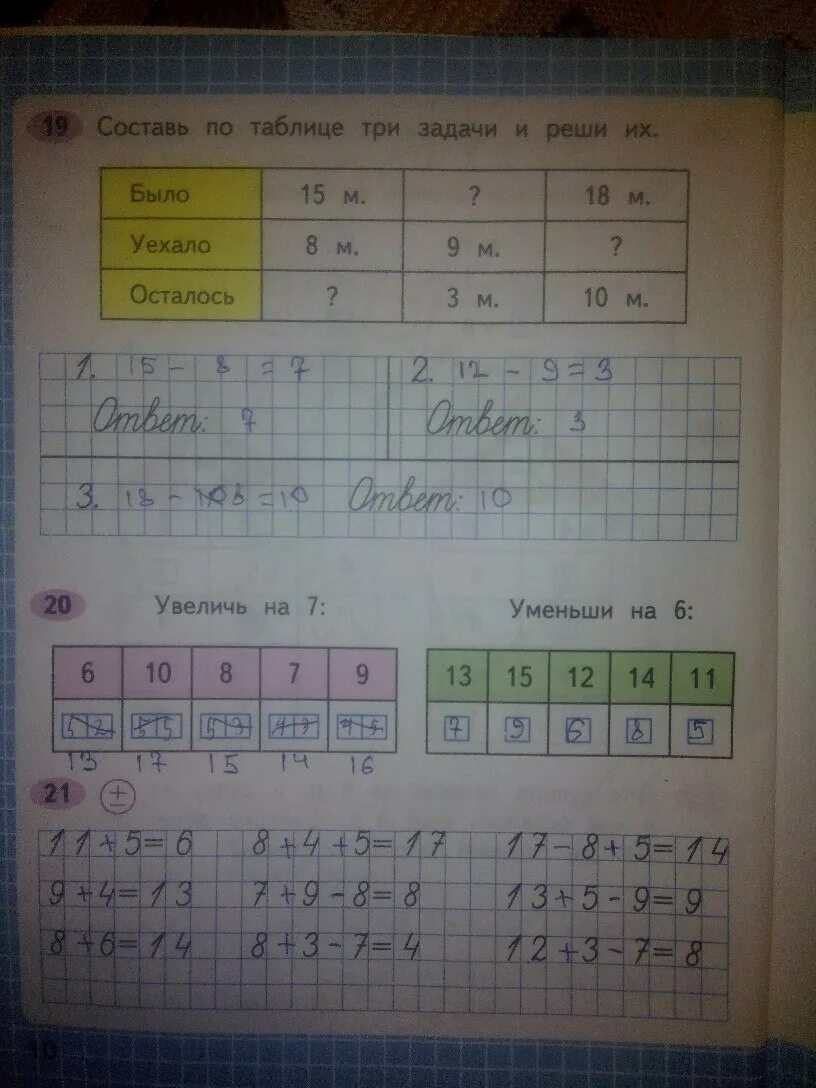 19 Составь по таблице три задачи и реши их.
Было 15 м. ? 18 м.
Уехало 8 м. 9 м. ?
Осталось ? 3 м. 10 м.
1. 15 - 8 = 7 2. 12 - 9 = 3
Ответ: 7 Ответ: 3
3. 18 - 8 = 10 Ответ: 10
20 Увеличь на 7: Уменьши на 6:
6 10 8 7 9 13 15 12 14 11
7 9 6 8 5
13 17 15 14 16
21 ±
11+5=6 8+4+5=17 17-8+5=14
9+4=13 7+9-8=8 13+5-9=9
8+6=14 8+3-7=4 12+3-7=8
10